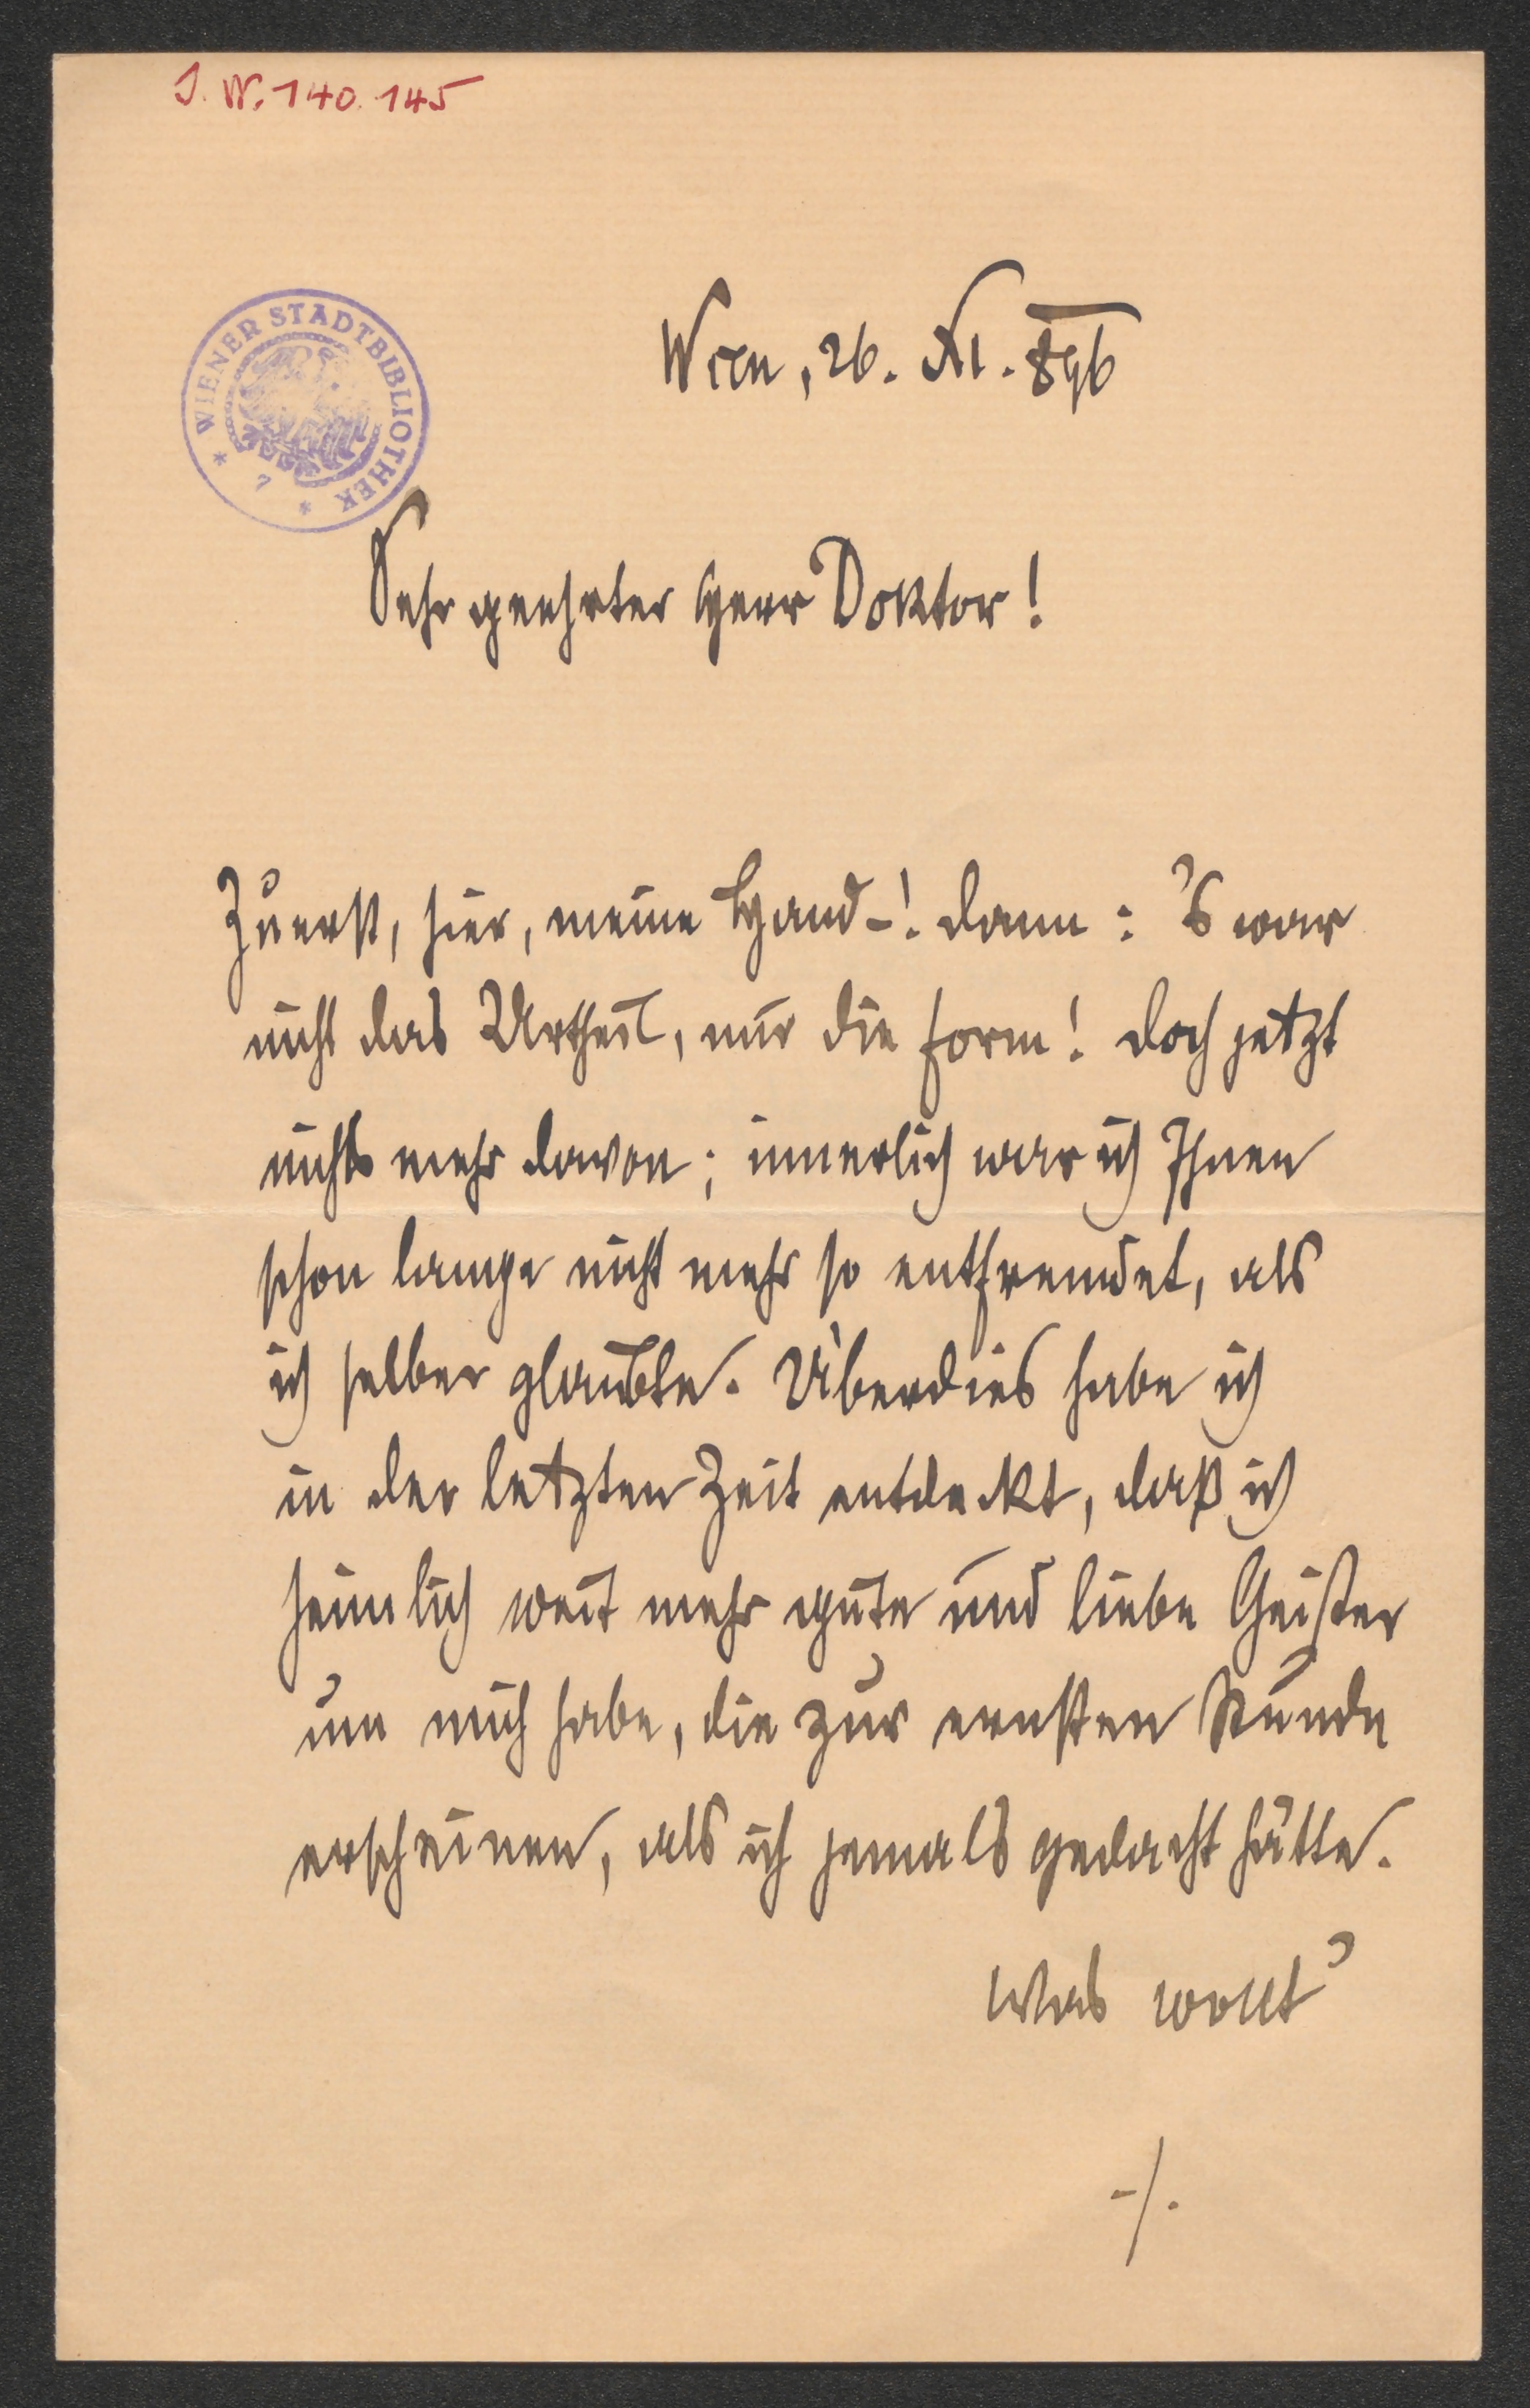 J. N. 140.145
* WIENER STADTBIBLIOTHEK *
Wien, 26. XI. 896
Sehr geehrter Herr Doktor!
Zuerst, hier, meine Hand-! dann: 's war
nicht das Urtheil, nur die Form! doch jetzt
nichts mehr davon; innerlich war ich Ihnen
schon lange nicht mehr so entfremdet, als
ich selber glaubte. Überdies habe ich
in der letzten Zeit entdeckt, daß ich
heimlich weit mehr gute und liebe Geister
um mich habe, die zur ernsten Stunde
erscheinen, als ich jemals gedacht hätte.
Was wollt'
-/.